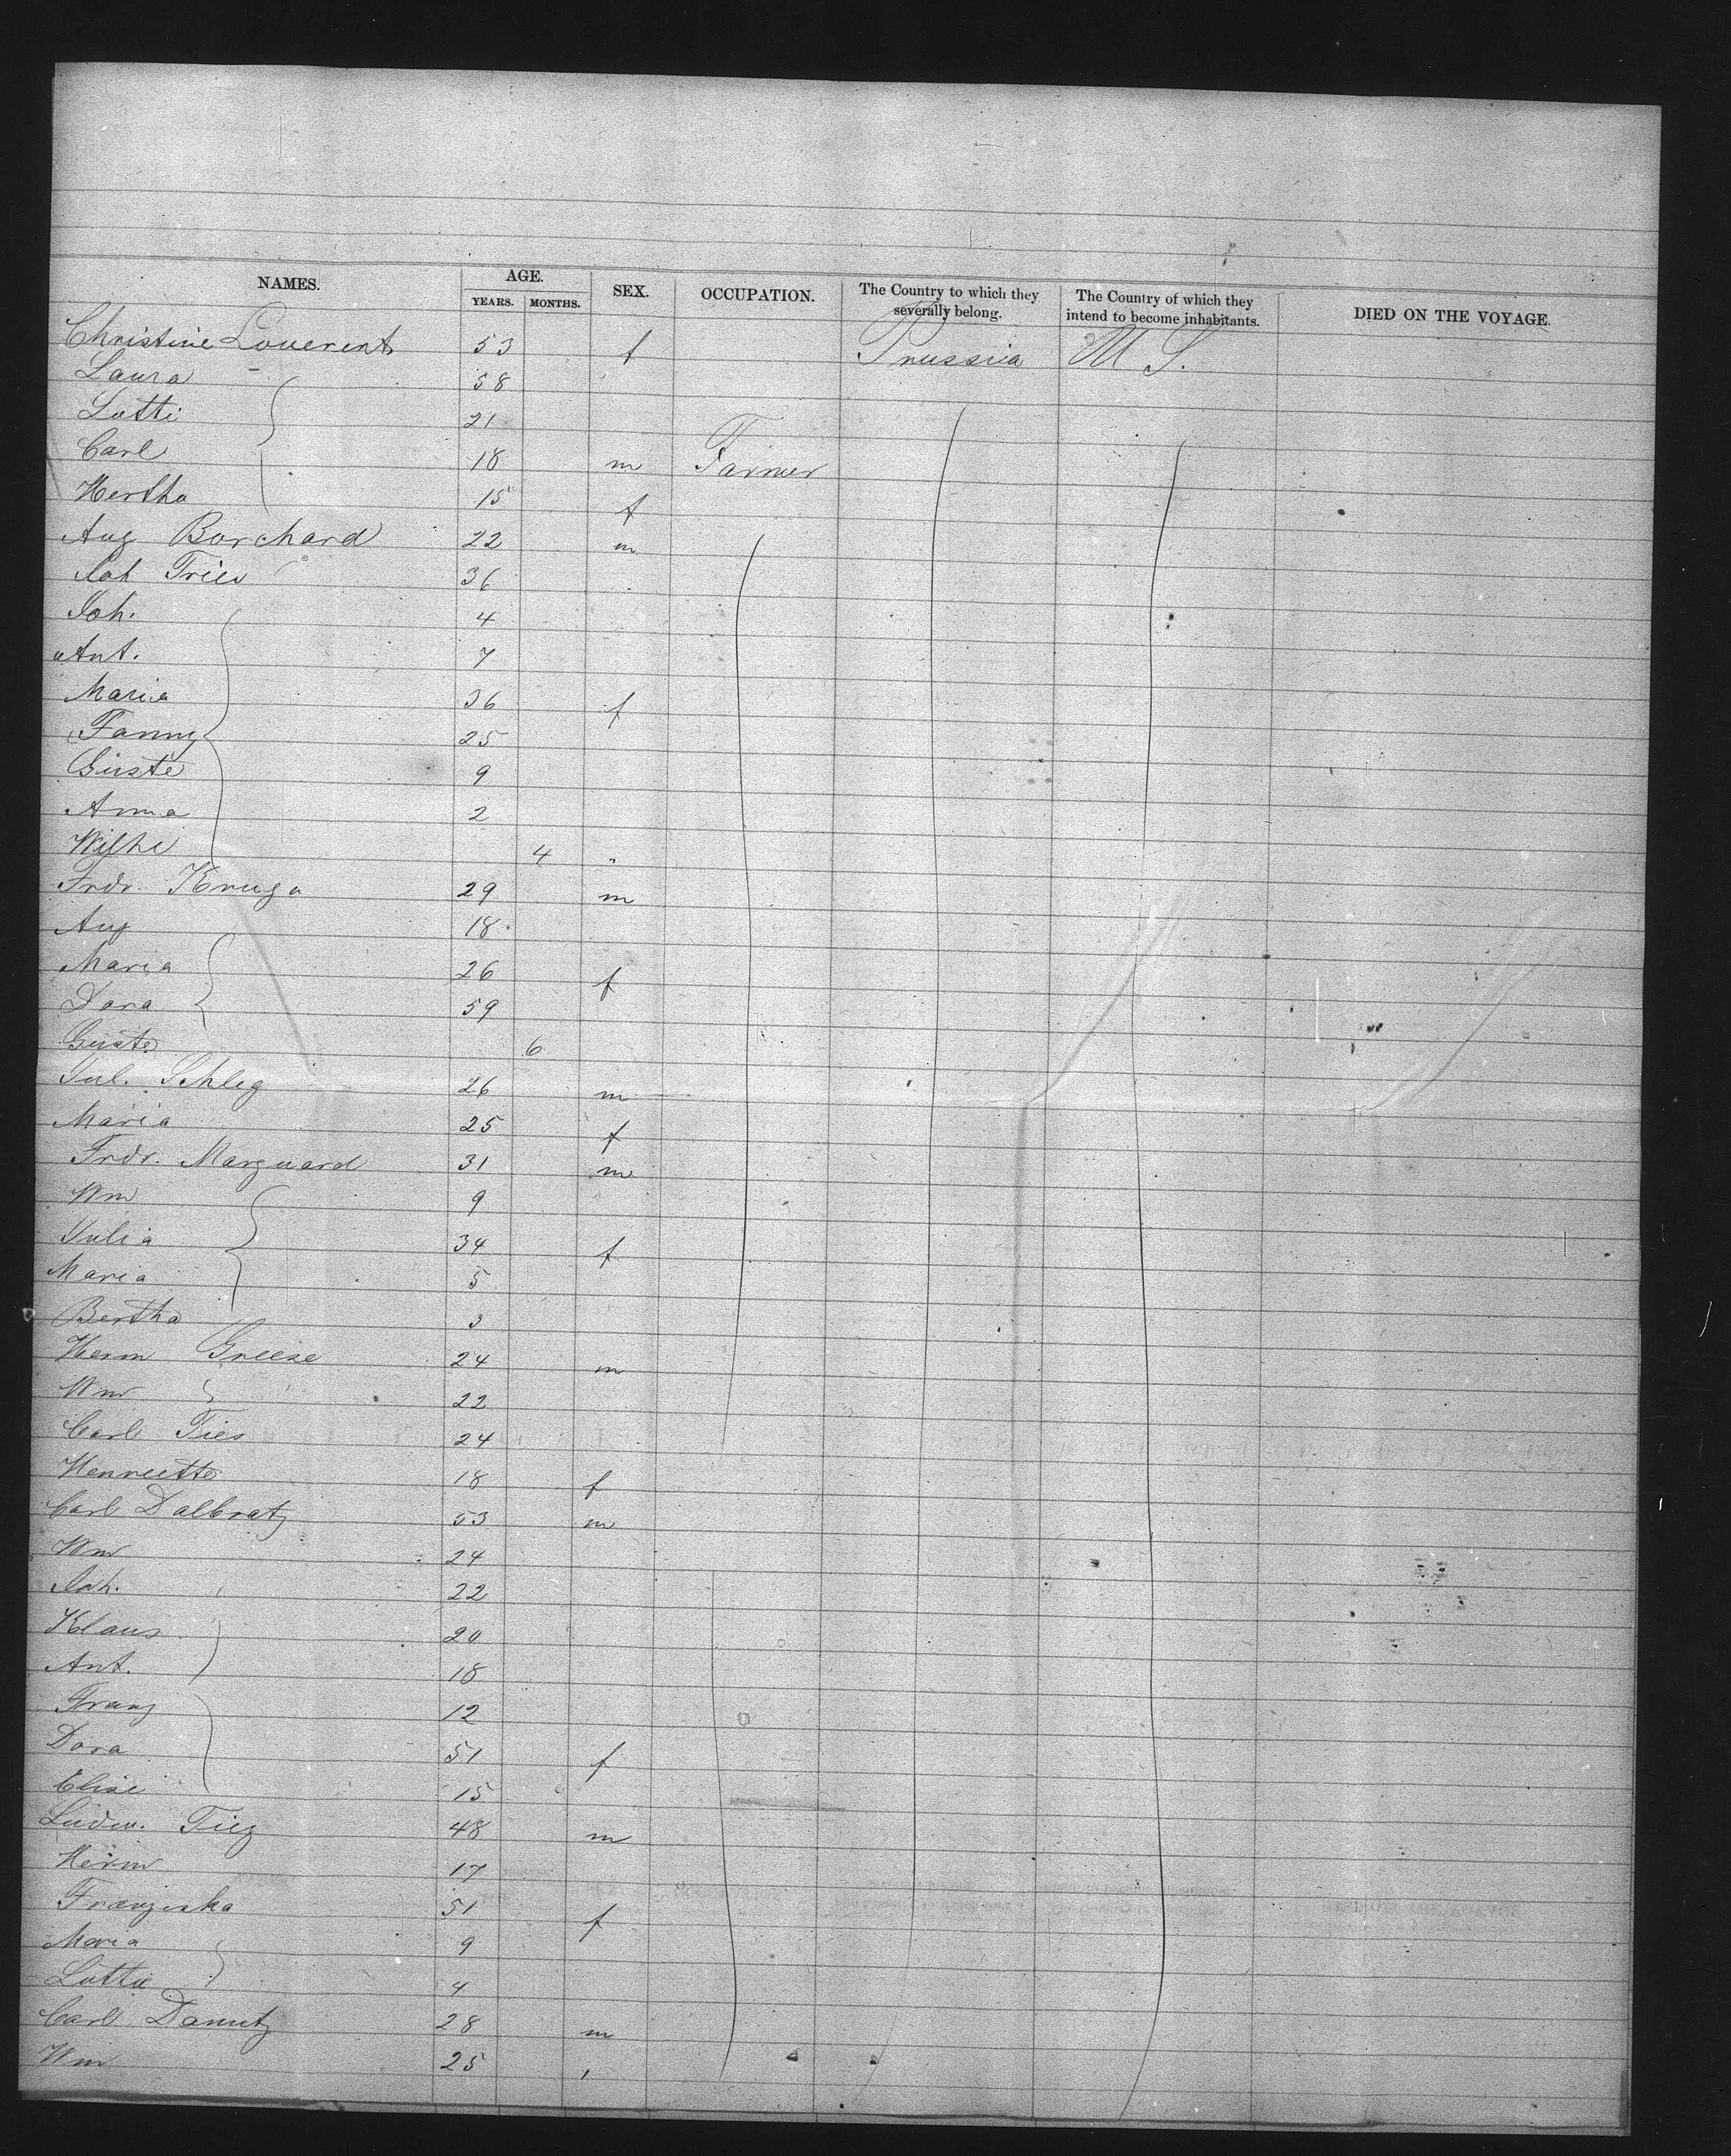 NAMES. AGE. SEX. OCCUPATION. The Country to which they severally belong. The Country of which they intend to become inhabitants. DIED ON THE VOYAGE.
YEARS. MONTHS.
Christine Louerent 53 f Prussia U S.
Laura 58
Lotti 21
Carl 18 m Farmer
Hertha 15 f
Aug Borchard 22 m
Joh Fries 36
Joh. 4
Ant. 7
Maria 36 f
Fanny 25
Guste 9
Anna 2
Wilhe 4 "
Frdr. Kruga 29 m
Aug 18
Maria 26 f
Dora 59
Guste 6
Jul. Schleg 26 m
Maria 25 f
Frdr. Marguard 31 m
Wm 9
Julia 34 f
Maria 5
Bertha 3
Herm Greese 24 m
Wm 22
Carl Ties 24
Henriette 18 f
Carl Dalbratz 53 m
Wm 24
Joh. 22
Klaus 20
Ant. 18
Franz 12
Dora 51 f
Elise 15
Ludw. Tiez 48 m
Herm 17
Franziska 51 f
Maria 9
Lotte 4
Carl Damutz 28 m
Wm 25